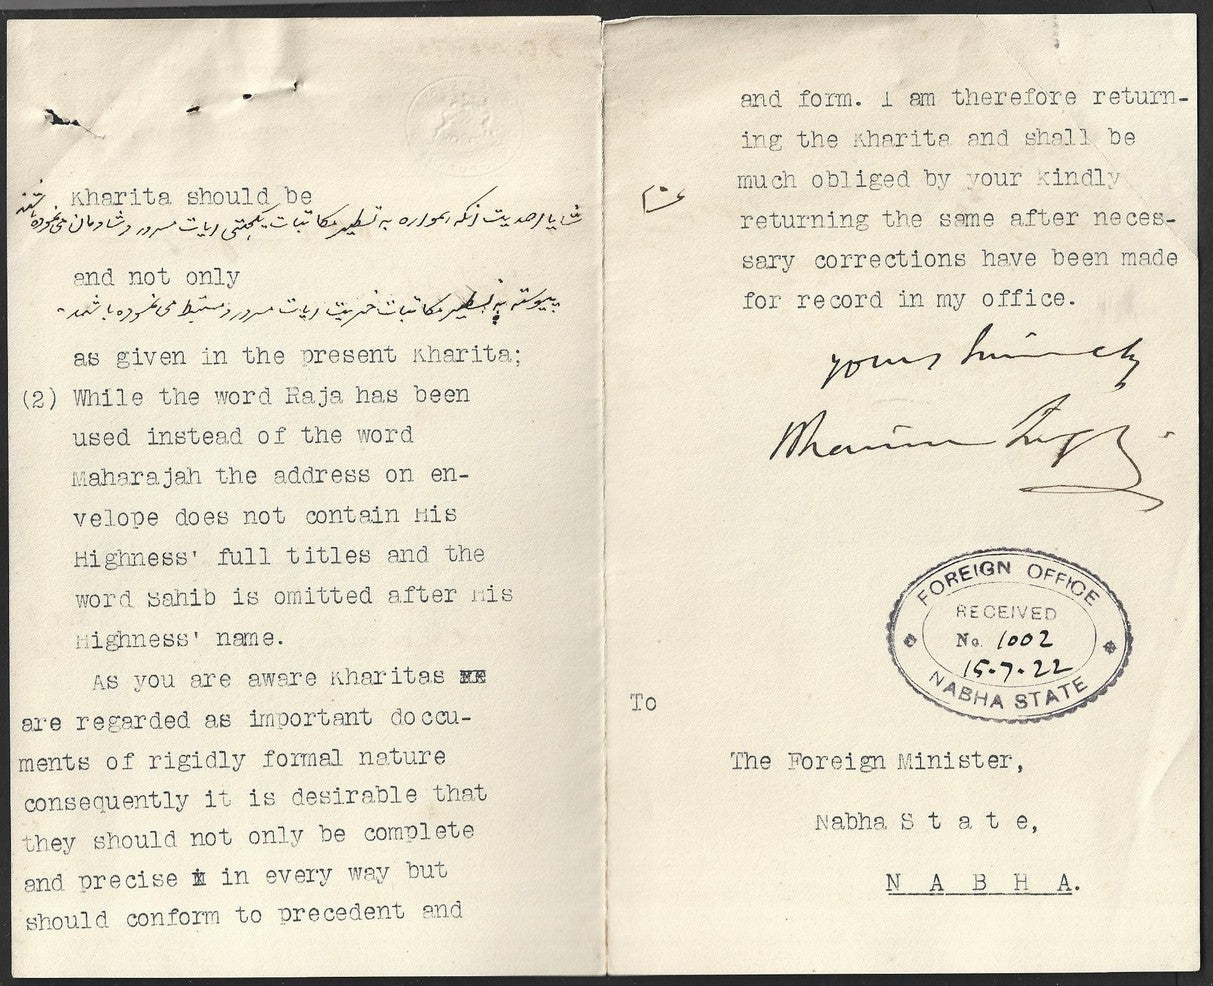 Kharita should be
شایان احدیت آنکه همواره به تسطیر مکاتبات یکجهتی آیات مسرور و شادمان می فرموده باشند
and not only
پیوسته به تسطیر مکاتبات خیریت آیات مسرور و منبسط می فرموده باشند۔
as given in the present Kharita;
(2) While the word Raja has been
used instead of the word
Maharajah the address on en-
velope does not contain His
Highness' full titles and the
word Sahib is omitted after His
Highness' name.
As you are aware Kharitas
are regarded as important doccu-
ments of rigidly formal nature
consequently it is desirable that
they should not only be complete
and precise in every way but
should conform to precedent and
and form. I am therefore return-
ing the Kharita and shall be
much obliged by your kindly
returning the same after neces-
sary corrections have been made
for record in my office.
yours sincerely
FOREIGN OFFICE
RECEIVED
No. 1002
15-7-22
NABHA STATE
To
The Foreign Minister,
Nabha S t a t e,
N A B H A.